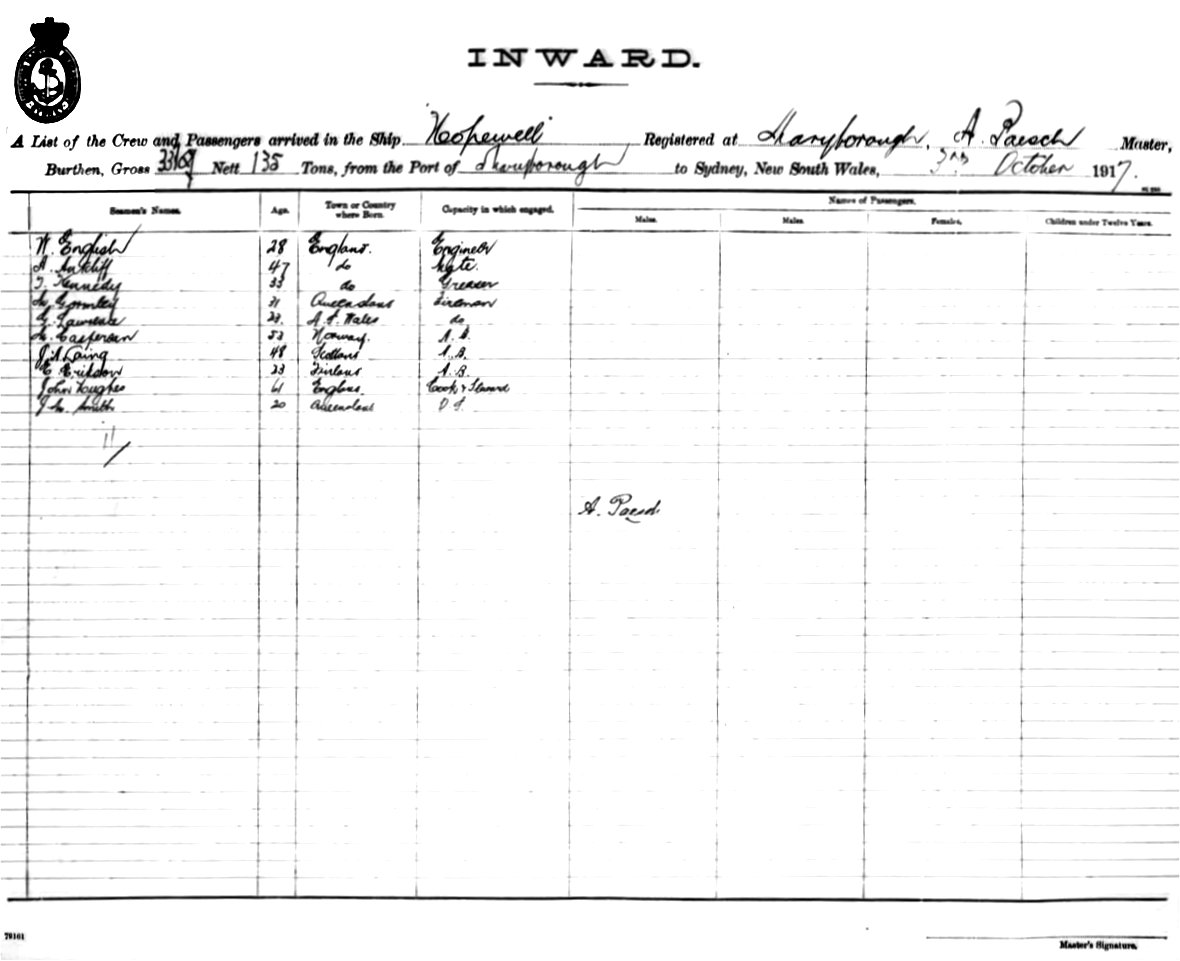 INWARD.
A List of the Crew and Passengers arrived in the Ship Hopewell, Registered at Maryborough, A. Paesch Master,
Burthen, Gross Nett 135 Tons, from the Port of Maryborough to Sydney, New South Wales, 3rd October 1917.
Seamen's Names. Age. Town or Country where Born. Capacity in which engaged. Names of Passengers.
Males. Males. Females. Children under Twelve Years.
W. English 28 England. Engineer
A. 47 do Mate.
T. Kennedy 33 do Greaser
Gormley 31 Queensland Fireman
G. Lawrence 23. N. S. Wales do
Caspersen 53 Norway. A. B.
J. A. Laing 48 Scotland A. B.
E. Erikson 23 Finland A. B.
John Hughes 61 England Cook & Steward
J. Smith 20 Queensland O. S.
11
A. Paesch
79161
Master's Signature.